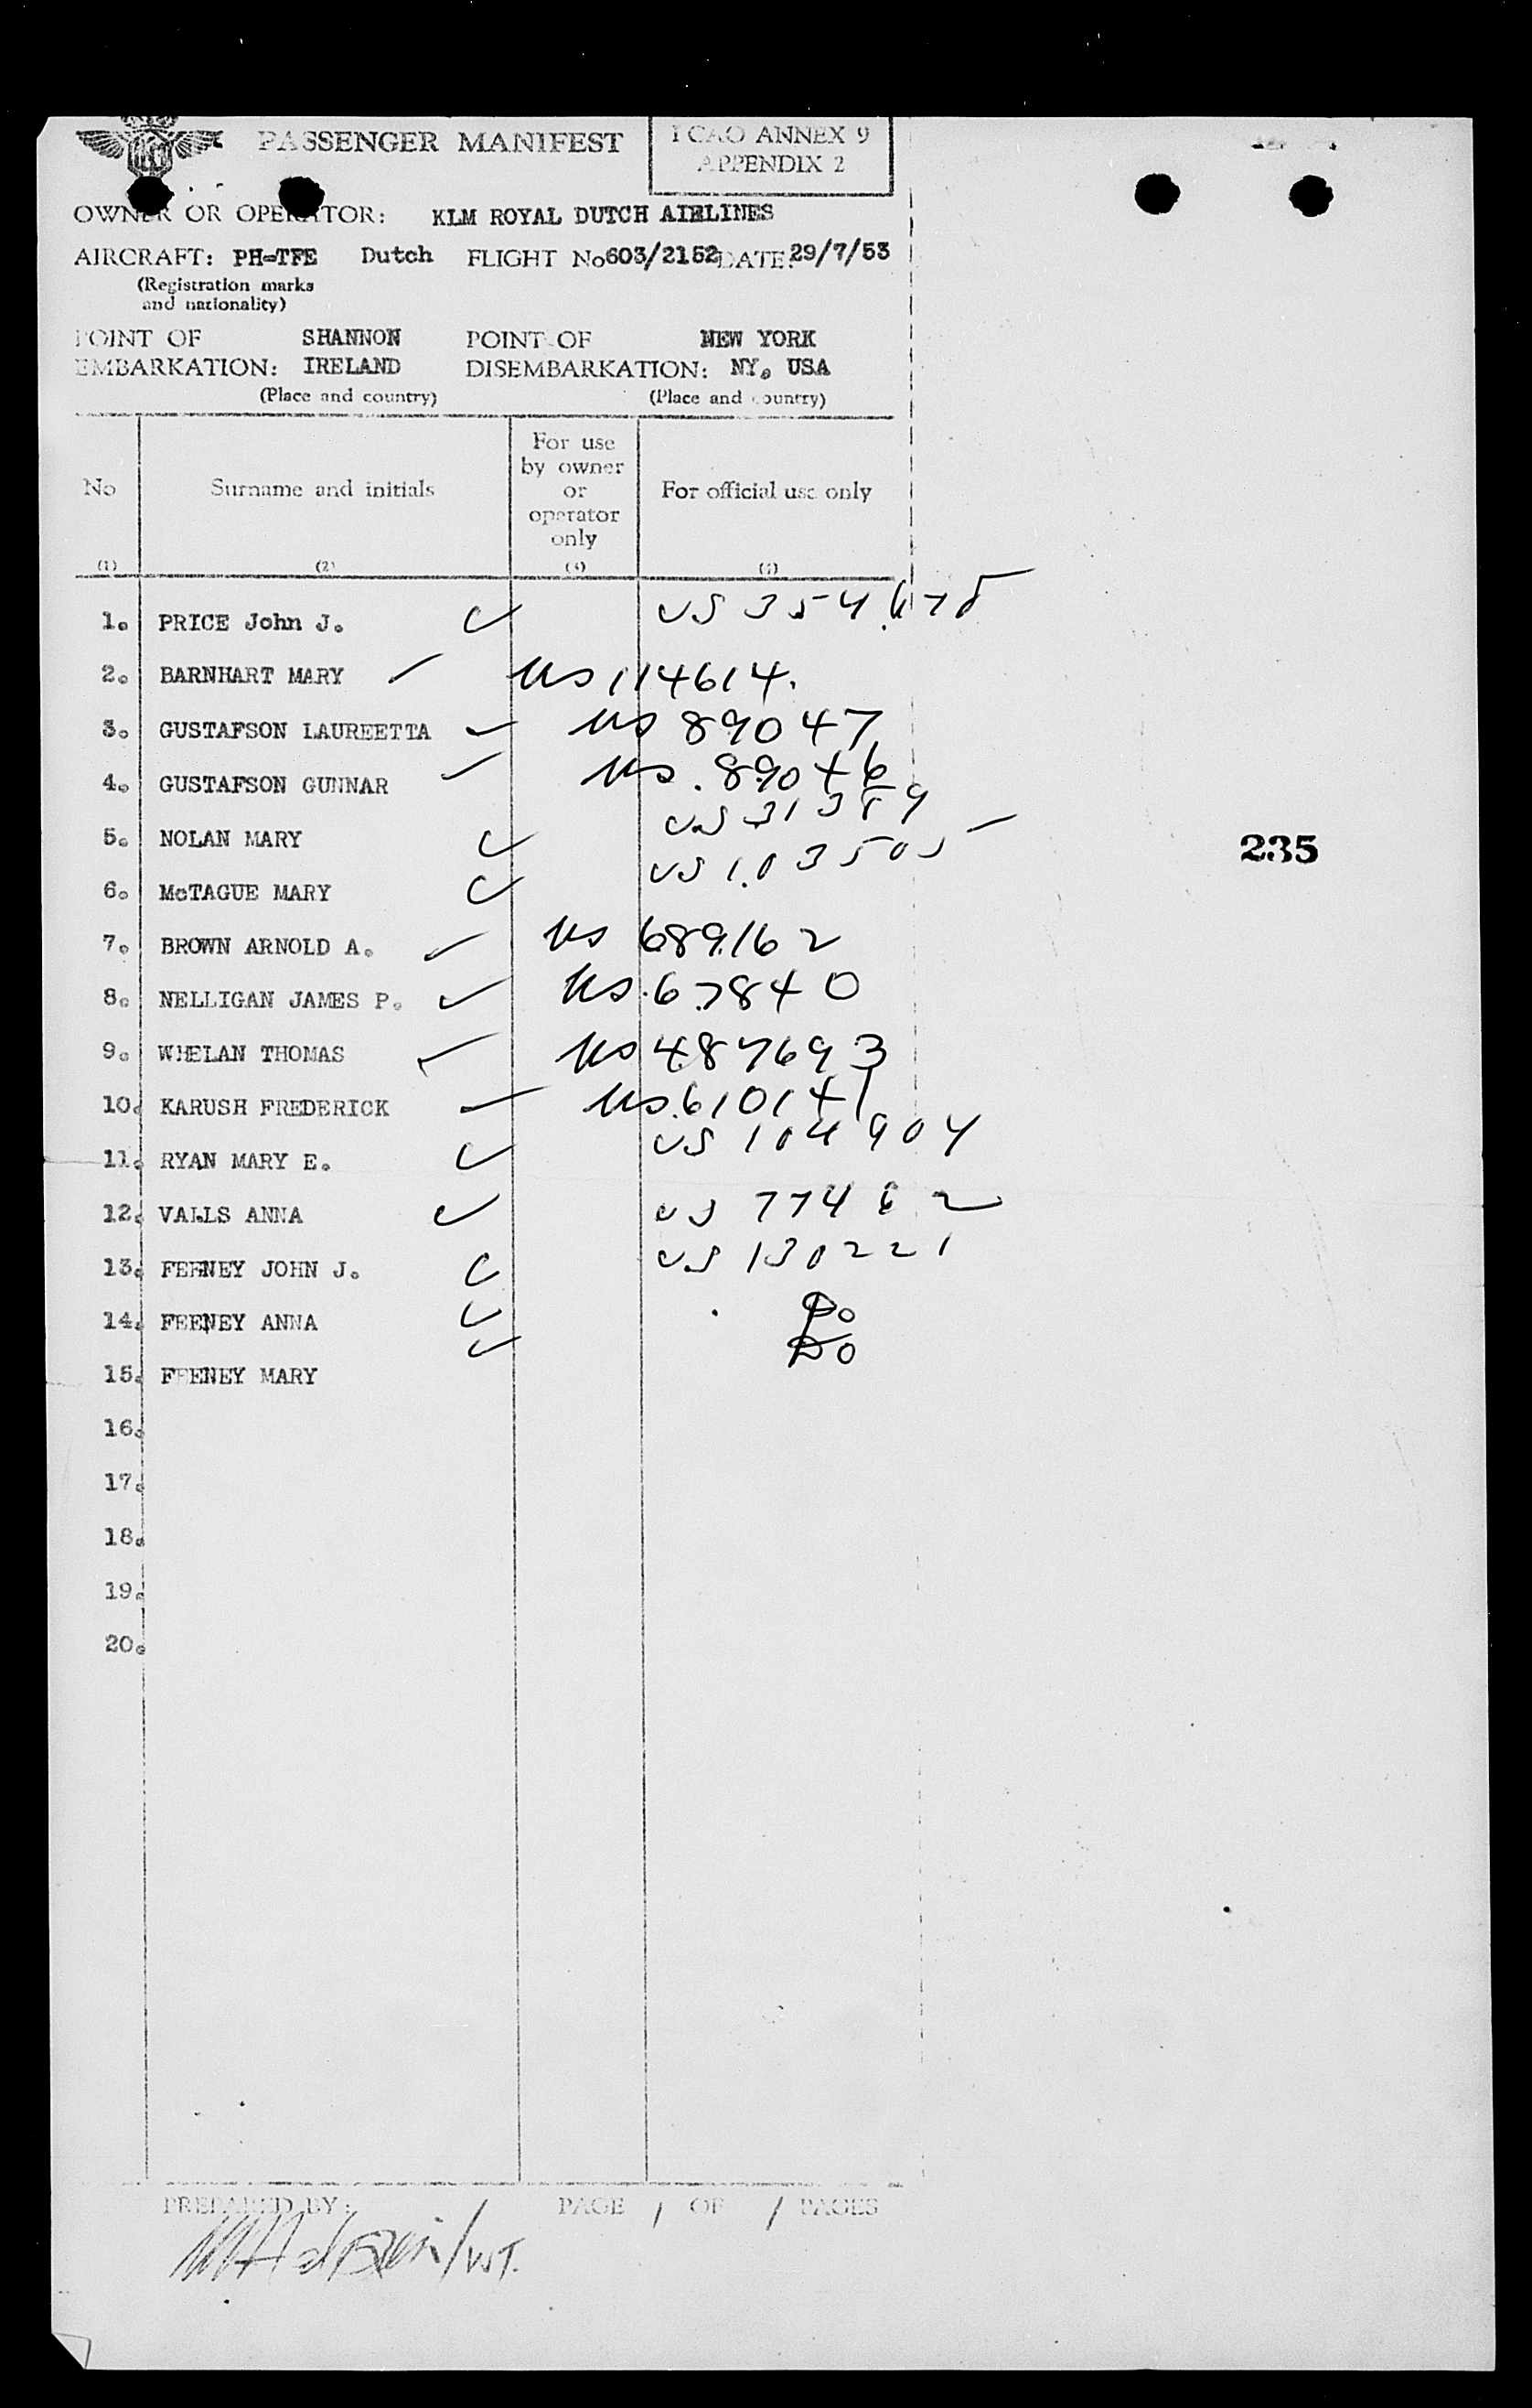 PASSENGER MANIFEST
ICAO ANNEX 9
APPENDIX 2
OWNER OR OPERATOR: KLM ROYAL DUTCH AIRLINES
AIRCRAFT: PH-TFE Dutch FLIGHT No 603/2152 DATE: 29/7/53
(Registration marks
and nationality)
POINT OF SHANNON POINT OF NEW YORK
EMBARKATION: IRELAND DISEMBARKATION: NY. USA
(Place and country) (Place and country)
No Surname and initials For use by owner or operator only For official use only
(1) (2)
1. PRICE John J. US 354678
2. BARNHART MARY US 114614.
3. GUSTAFSON LAUREETTA US 89047
4. GUSTAFSON GUNNAR US. 89046
5. NOLAN MARY US 31389
6. McTAGUE MARY US 103505
7. BROWN ARNOLD A. US 689162
8. NELLIGAN JAMES P. US. 67840
9. WHELAN THOMAS US 487693
10. KARUSH FREDERICK US. 610141
11. RYAN MARY E. US 104904
12. VALLS ANNA US 77462
13. FEENEY JOHN J. US 130221
14. FEENEY ANNA Do
15. FEENEY MARY Do
16.
17.
18.
19.
20.
235
PREPARED BY: PAGE 1 OF 1 PAGES